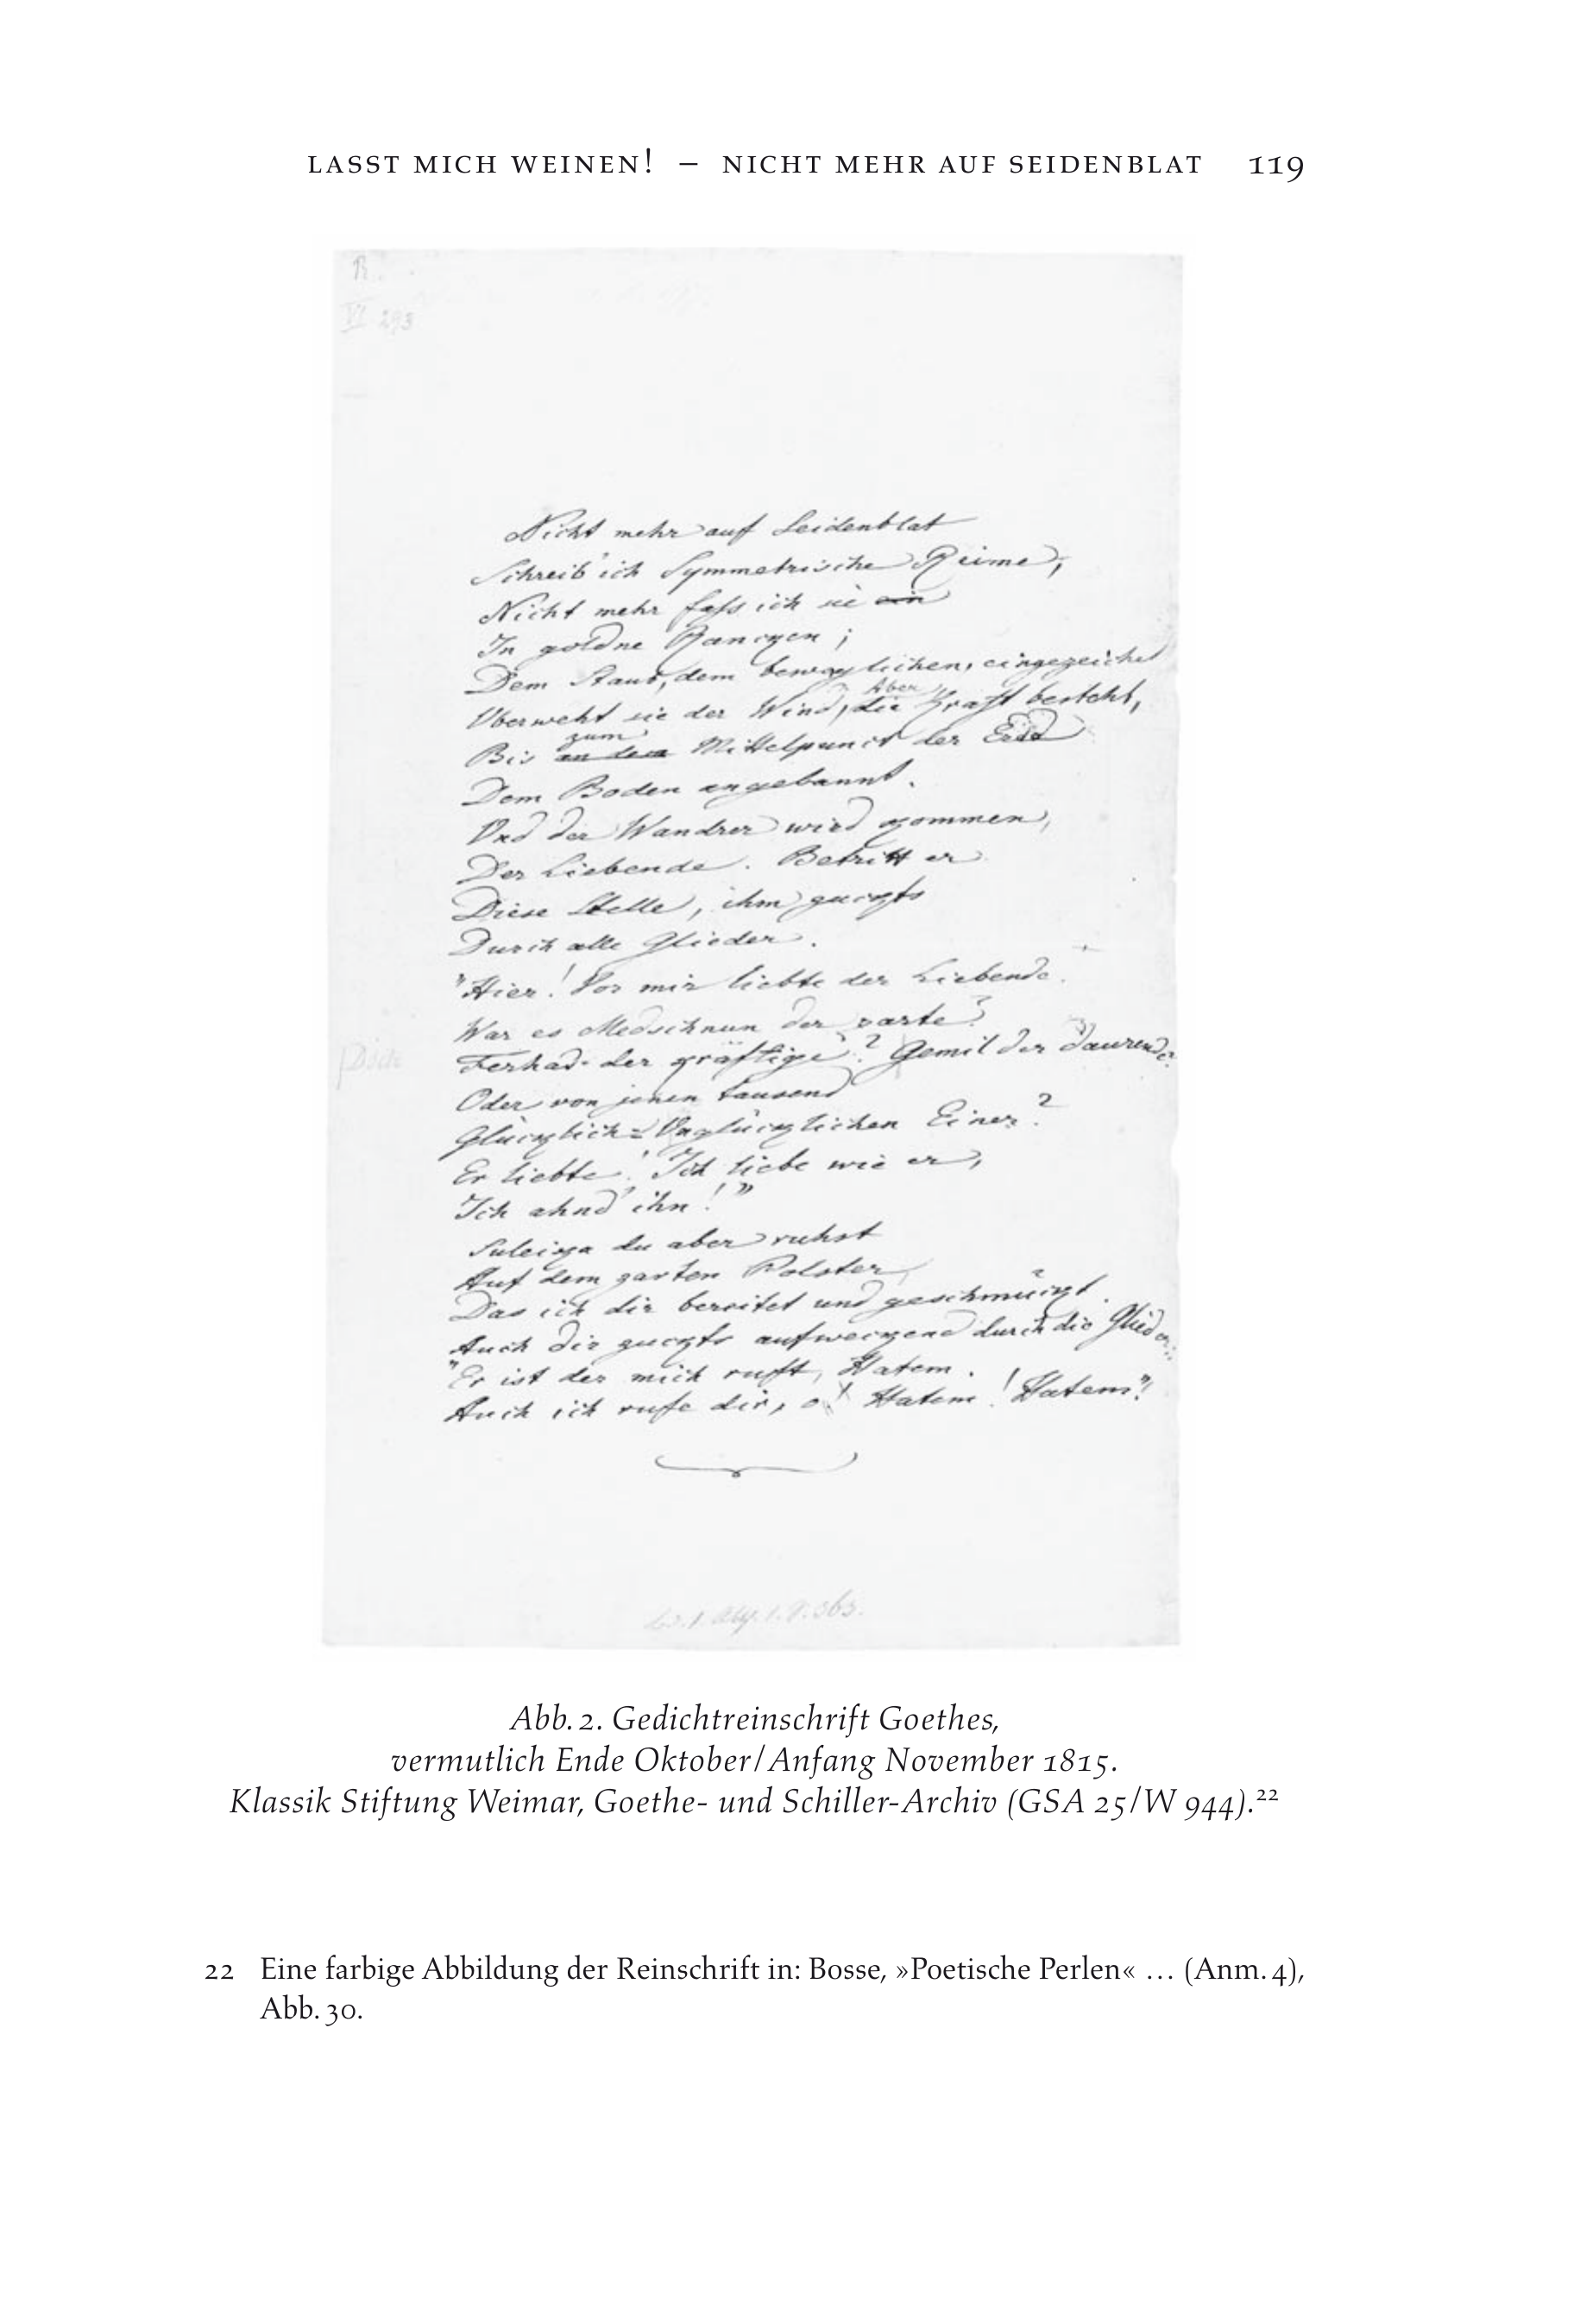 LASST MICH WEINEN! – NICHT MEHR AUF SEIDENBLAT 119
R.
VI 293
Nicht mehr auf Seidenblat
Schreib' ich Symmetrische Reime,
Nicht mehr fass ich sie ein
In goldne Rancken;
Dem Staub, dem beweglichen, eingezeichnet
Aber
Überweht sie der Wind, die Kraft besteht,
zum
Bis an den Mittelpunct der Erde
Dem Boden angebannt.
Und der Wandrer wird kommen,
Der Liebende. Betritt er
Diese Stelle, ihm zuckts
Durch alle Glieder.
"Hier! Vor mir liebte der Liebende.
War es Medschnun der zarte?
Ferhad der kräftige? Gemil der daurende?
Oder von jenen tausend
Glücklich=Unglücklichen Einer?
Er liebte! Ich liebe wie er,
Ich ahnd' ihn!"
Suleika du aber ruhst
Auf dem zarten Polster
Das ich dir bereitet und geschmückt.
Auch dir zuckts aufweckend durch die Glieder
"Er ist der mich ruft, Hatem.
Auch ich rufe dir, o! Hatem! Hatem"!
Abb. 2. Gedichtreinschrift Goethes,
vermutlich Ende Oktober/Anfang November 1815.
Klassik Stiftung Weimar, Goethe- und Schiller-Archiv (GSA 25/W 944).²²
22 Eine farbige Abbildung der Reinschrift in: Bosse, »Poetische Perlen« … (Anm. 4),
Abb. 30.